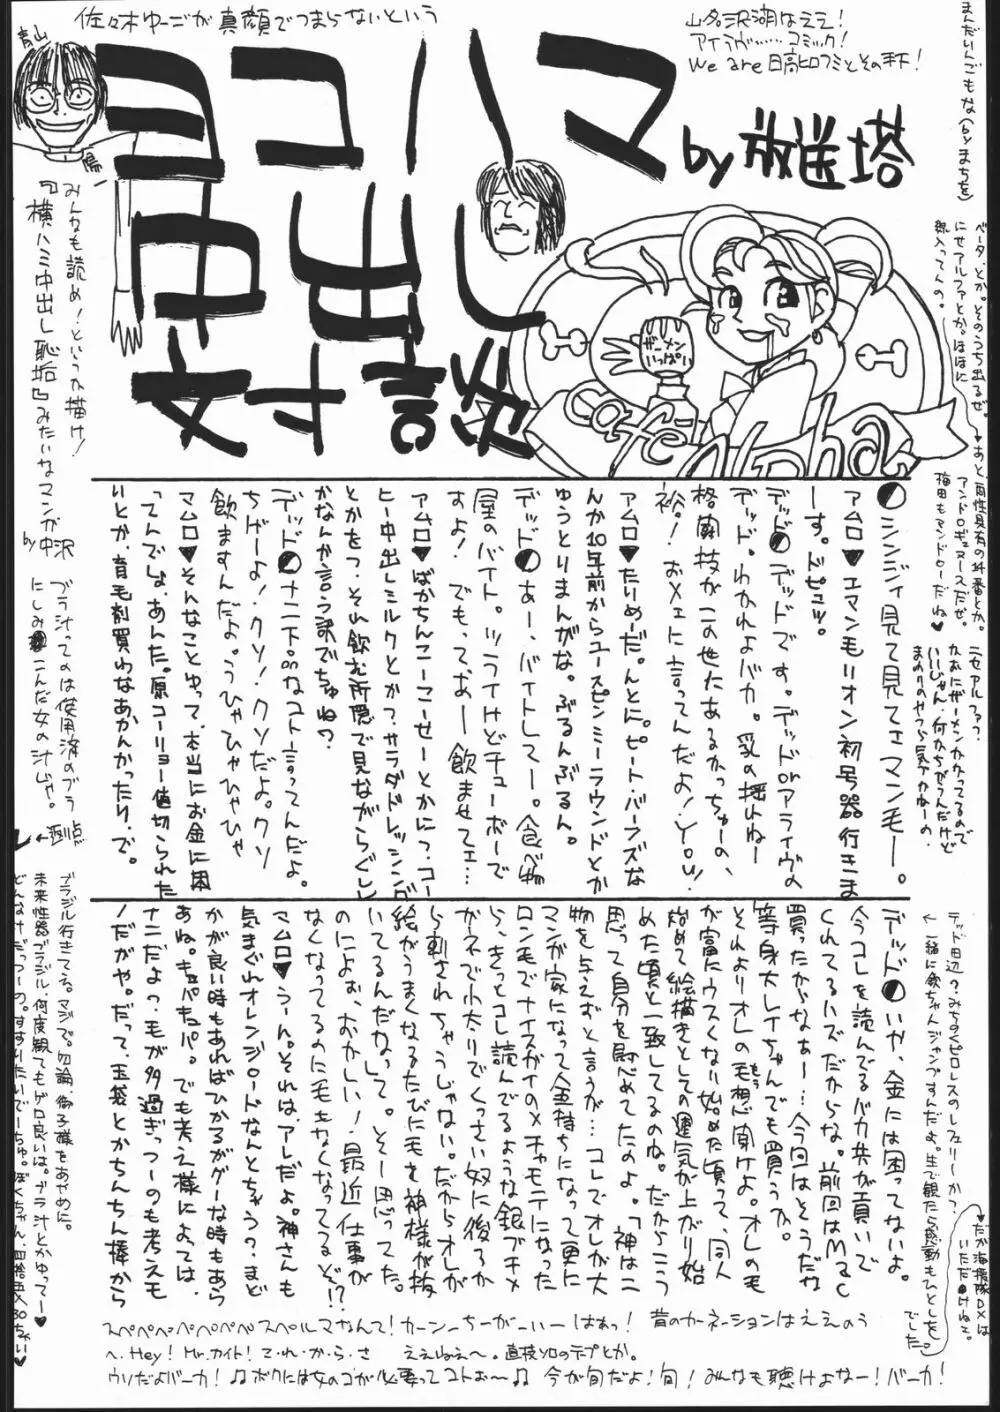 佐々木ゆーごが真顔でつまらないという
ヨコハマ
中出し
対談
by 放送塔
山名沢湖はええ!
アイラヴ……コミック!
We are 日高ヒロフミとその手下!
まんだいんごもな(byまちを)
青山
ザーメン
いっぱい
café Alpha
みんなも読め!というか描け!
『横ハミ中出し恥垢』みたいなマンガ
by 中沢
ブラ汁ってのは使用済のブラ
にしみこんだ女の汁じゃ。
ベータ、とか。そのうち出るぜ。
にせアルファとか。ははに
アンドロギュヌースだぜ。
梅田もマンドローだね♥
ニセアルファ?
かおにザーメンかかってるので
いいじゃん!何かちがうんだけど
●シンジィ見て見てエマン毛ー。
アムロ♥エマン毛リオン初号器行きま
ーす。ドピュッ。
デッド●デッドです。デッドorアライヴの
デッド。わかれよバカ。乳の揺れねー
格闘技がこの世たあるかっちゅーの、
裕!おメエに言ってんだよ!You!
アムロ♥たいめだ。んとに。ピート・バーンズな
んか10年前からユースピンミーラウンドとか
ゆうとりまんがな。ぶるんぶるん。
デッド●あー、バイトしてー。食べ物
屋のバイト。ツライけどチューボーで
すよ!でもって、あー飲ませてェ…
アムロ♥ばかちんこーこーせーとかにっ、コー
ヒー中出しミルクとかっ、サラダドレッシング
とかをっ、それ飲む所隠で見ながらぐしし
かなんか言う訳でちゅね?
デッド●ナニ下品なコト言ってんだよ。
ちげーよ!クソ!クソだよ。クソ
飲ますんだよ。うひゃひゃひゃひゃ
マムロ♥そんなことゆって、本当にお金に困
ってんでしょ、あんた。原コーリョー値切られた
いとか、育毛剤買わなあかんかったり、で。
デッド●いや、金には困ってないよ。
今コレを読んでるバカ共が貢いで
くれてるハズだからな。前回はMac
買ったかなぁー…今回はどうだな
等身大レイちゃんでも買うか。
それよりオレの毛想聞けよ。オレの毛
が富にウスくなり始めた頃って、同人
始めて絵描きとしての運気が上がり始
めた頃と一致してるのね。だからこう
思って自分を慰めてたのよ。「神は二
物を与えずと言うが…コレでオレが大
マンガ家になって金持ちになって更に
ロン毛でナイスガイのメチャモテになった
ら、きっとコレ読んでるような銀ブチメ
ガネで小太りでくっさい奴に後ろか
ら刺されちゃうじゃない。だからオレが
絵がうまくなるたびに毛を神様が抜
いてるんだなって。そー思ってた。
のによぉ、おかしい!最近仕事が
なくなってるのに毛もなくなってるぞ!?
マムロ♥うーん。それは、アレだよ。神さんも
気まぐれオレンジロードなんとちゃう?まど
かが良い時もあればひかるがグーな時もあら
あね。キュパキュパ。でも考え様によっては、
ナニだよっ、毛が多過ぎっつーのも考えも
ノだがや。だって、玉袋とかちんちん棒から
ブラジル行きてえる。マジで。勿論、御子様をあやめに。
未来性器ブラジル、何度観てもゲロ良いは。ブラ汁とかゆってー♥
デッド田辺?みちのくプロレスのレフェリーかっ?
♥だが海援隊DXは
いただけねェ。
スペペペペペペペスペルマなんて!カーンーちーがーいーはぁっ! 昔のカーネーションはええのう
へ、Hey! Mr.カイト!マ・れ・か・ら・さ ええねえ〜。直枝ソロのテープとか。
ウソだよバーカ!♫ボクには女のコが必要ってコトぉ〜♫ 今が旬だよ!旬!みんなも聴けよなー!バーカ!